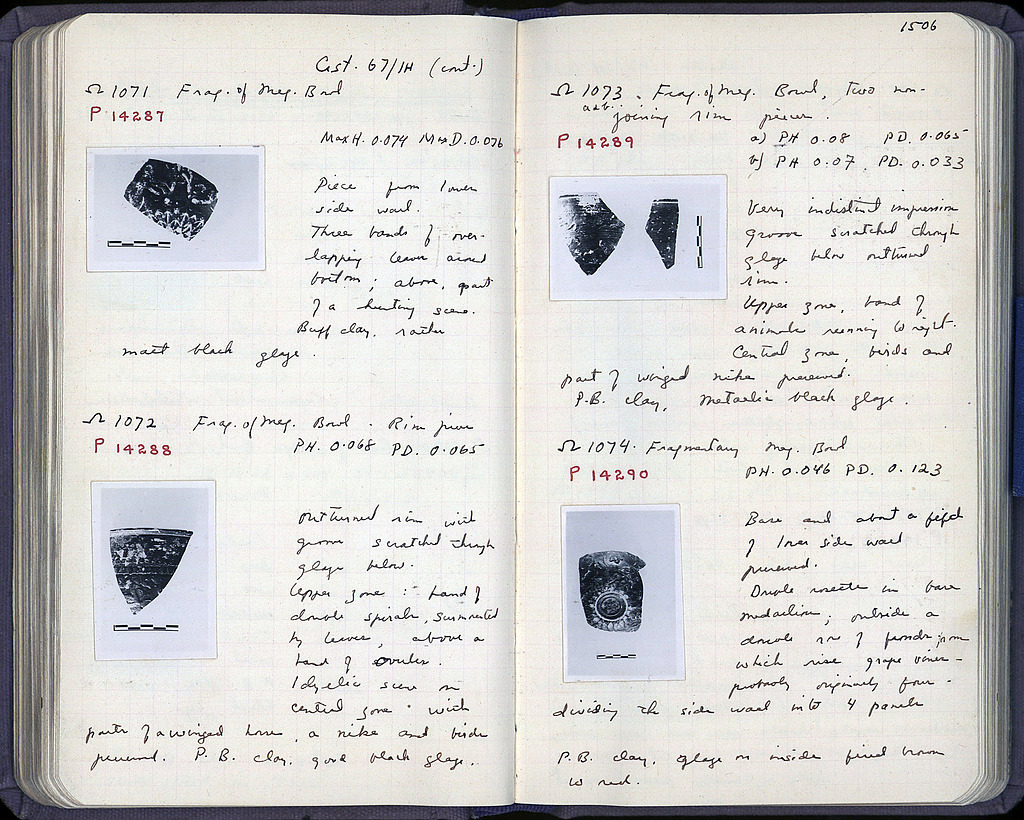 Cist. 67/ΙΗ (cont.)
Ω 1071 Frag. of Meg. Bowl
P 14287
Max H. 0.074 Max D. 0.076
Piece from lower
side wall.
Three bands of over-
lapping leaves around
bottom; above, part
of a hunting scene.
Buff clay, rather
matt black glaze.
Ω 1072 Frag. of Meg. Bowl. Rim piece
P 14288
PH. 0.068 PD. 0.065
Outturned rim with
groove scratched through
glaze below.
Upper zone: band of
double spirals, surmounted
by leaves, above a
band of ovules.
Idyllic scene in
central zone with
parts of a winged horse, a nike and birds
preserved. P.B. clay, good black glaze.
1506
Ω 1073. Frag. of Meg. Bowl, Two non-
a & b.
joining rim pieces.
P 14289
a) PH 0.08 PD. 0.065
b) PH 0.07, PD. 0.033
Very indistinct impression
groove scratched through
glaze below outturned
rim.
Upper zone, band of
animals running to right.
Central zone, birds and
part of winged nike preserved.
P.B. clay, metallic black glaze.
Ω 1074. Fragmentary Meg. Bowl
P 14290
PH. 0.046 PD. 0.123
Base and about a fifth
of lower side wall
preserved.
Double rosette in base
medallion; outside a
double row of fronds from
which rise grape vines -
probably originally four -
dividing the side wall into 4 panels
P.B. clay, glaze on inside fired brown
to red.